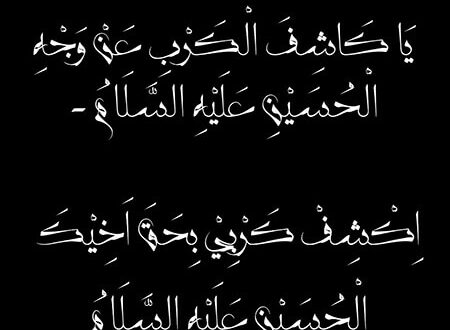 يَا كَاشِفَ الْكَرْبِ عَنْ وَجْهِ
الْحُسَيْنِ عَلَيْهِ السَّلَامُ -
اِكْشِفْ كَرْبِيْ بِحَقِّ اَخِيْكَ
الْحُسَيْنِ عَلَيْهِ السَّلَامُ